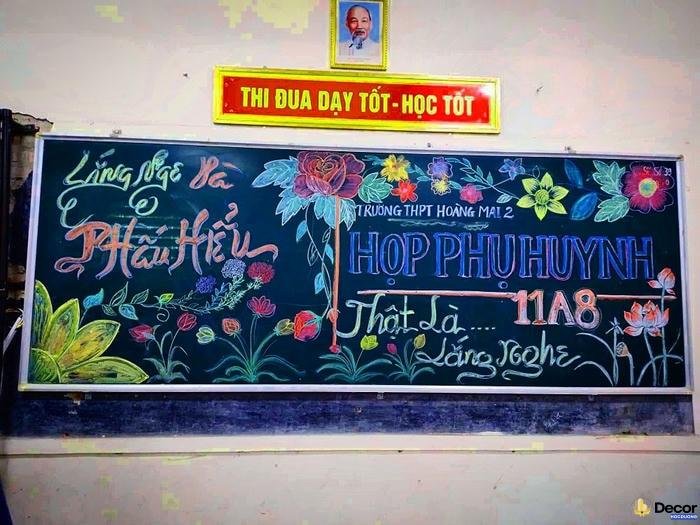 THI ĐUA DẠY TỐT - HỌC TỐT
Lắng Nge Và
PHấu HIỂu
TRƯỜNG THPT HOÀNG MAI 2
HỌP PHỤ HUYNH
11A8
Thật Là ....
Lắng Nghe
Decor
HOCDUONG